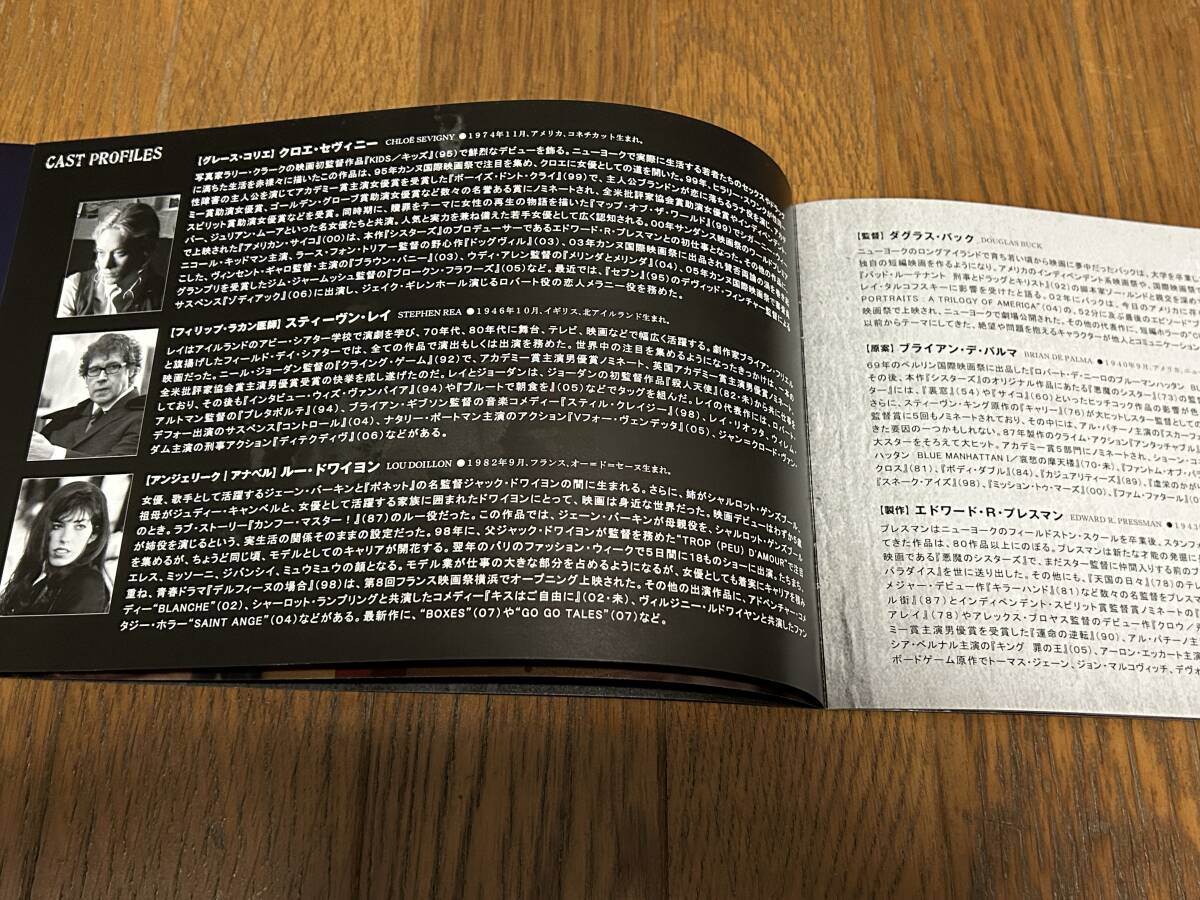 CAST PROFILES
[グレース・コリエ] クロエ・セヴィニー CHLOË SEVIGNY ●1974年11月、アメリカ、コネチカット生まれ。
写真家ラリー・クラークの映画初監督作品『KIDS/キッズ』(95)で鮮烈なデビューを飾る。ニューヨークで実際に生活する若者たちのセックスやドラッグ
に満ちた生活を赤裸々に描いたこの作品は、95年カンヌ国際映画祭で注目を集め、クロエに女優としての道を開いた。99年、ヒラリー・スワンクが
性障害の主人公を演じてアカデミー賞主演女優賞を受賞した『ボーイズ・ドント・クライ』(99)で、主人公ブランドンが恋に落ちるラナ役を演じ、アカデ
ミー賞助演女優賞、ゴールデン・グローブ賞助演女優賞など数々の名誉ある賞にノミネートされ、全米批評家協会賞助演女優賞やインディペンデント・
スピリット賞助演女優賞などを受賞。同時期に、贖罪をテーマに女性の再生の物語を描いた『マップ・オブ・ザ・ワールド』(99)で
バー、ジュリアン・ムーアといった名女優たちと共演。人気と実力を兼ね備えた若手女優として広く認知される。00年サンダンス映画祭の
で上映された『アメリカン・サイコ』(00)は、本作『シスターズ』のプロデューサーであるエドワード・R・プレスマンとの初仕事となった。その他の
ニコール・キッドマン主演、ラース・フォン・トリアー監督の野心作『ドッグヴィル』(03)、03年カンヌ国際映画祭に出品され賛否両論の
こした、ヴィンセント・ギャロ監督・主演の『ブラウン・バニー』(03)、ウディ・アレン監督の『メリンダとメリンダ』(04)、05年カンヌ国際映画祭で
グランプリを受賞したジム・ジャームッシュ監督の『ブロークン・フラワーズ』(05)など。最近では、『セブン』(95)のデヴィッド・フィンチャー監督による
サスペンス『ゾディアック』(06)に出演し、ジェイク・ギレンホール演じるロバート役の恋人メラニー役を務めた。
[フィリップ・ラカン医師] スティーヴン・レイ STEPHEN REA ●1946年10月、イギリス、北アイルランド生まれ。
レイはアイルランドのアビー・シアター学校で演劇を学び、70年代、80年代に舞台、テレビ、映画などで幅広く活躍する。劇作家ブライアン・フリエル
と旗揚げしたフィールド・デイ・シアターでは、全ての作品で演出もしくは出演を務めた。世界中の注目を集めるようになったきっかけは、一本の
映画だった。ニール・ジョーダン監督の『クライング・ゲーム』(92)で、アカデミー賞主演男優賞ノミネート、英国アカデミー賞主演男優賞ノミネート、
全米批評家協会賞主演男優賞受賞の快挙を成し遂げたのだ。レイとジョーダンは、ジョーダンの初監督作品『殺人天使』(82・未)から共に仕事を
しており、その後も『インタビュー・ウィズ・ヴァンパイア』(94)や『プルートで朝食を』(05)などでタッグを組んだ。レイの代表作には、ロバート・
アルトマン監督の『プレタポルテ』(94)、ブライアン・ギブソン監督の音楽コメディー『スティル・クレイジー』(98)、レイ・リオッタ、ウィレム・
デフォー出演のサスペンス『コントロール』(04)、ナタリー・ポートマン主演のアクション『Vフォー・ヴェンデッタ』(05)、ジャン=クロード・ヴァン・
ダム主演の刑事アクション『ディテクティヴ』(06)などがある。
[アンジェリーク|アナベル] ルー・ドワイヨン LOU DOILLON ●1982年9月、フランス、オー=ド=セーヌ生まれ。
女優、歌手として活躍するジェーン・バーキンと『ポネット』の名監督ジャック・ドワイヨンの間に生まれる。さらに、姉がシャルロット・ゲンズブール、
祖母がジュディー・キャンベルと、女優として活躍する家族に囲まれたドワイヨンにとって、映画は身近な世界だった。映画デビューはわずか5歳
のとき。ラブ・ストーリー『カンフー・マスター!』(87)のルー役だった。この作品では、ジェーン・バーキンが母親役を、シャルロット・ゲンズブール
が姉役を演じるという、実生活の関係そのままの設定だった。98年に、父ジャック・ドワイヨンが監督を務めた“TROP (PEU) D'AMOUR”で注目
を集めるが、ちょうど同じ頃、モデルとしてのキャリアが開花する。翌年のパリのファッション・ウィークで5日間に18ものショーに出演。たちまち、
エレス、ミッソーニ、ジバンシイ、ミュウミュウの顔となる。モデル業が仕事の大きな部分を占めるようになるが、女優としても着実にキャリアを積み
重ね、青春ドラマ『デルフィーヌの場合』(98)は、第8回フランス映画祭横浜でオープニング上映された。その他の出演作に、アドベンチャー・コメ
ディー“BLANCHE”(02)、シャーロット・ランプリングと共演したコメディー『キスはご自由に』(02・未)、ヴィルジニー・ルドワイヤンと共演したファン
タジー・ホラー“SAINT ANGE”(04)などがある。最新作に、“BOXES”(07)や“GO GO TALES”(07)など。
[監督] ダグラス・バック DOUGLAS BUCK
ニューヨークのロングアイランドで育ち若い頃から映画に夢中だったバックは、大学を卒業し
独自の短編映画を作るようになり、アメリカのインディペンデント系映画祭や、国際映画祭で
『バッド・ルーテナント 刑事とドラッグとキリスト』(92)の脚本家ゾー・ルンドと親交を深め
レイ・タルコフスキーに影響を受けたと語る。02年にバックは、今日のアメリカに
PORTRAITS : A TRILOGY OF AMERICA”(04)の、52分に及ぶ最後のエピソード
映画祭で上映され、ニューヨークで劇場公開された。その他の代表作に、短編ホラーの“C
以前からテーマにしてきた、絶望や問題を抱えるキャラクターが他人とコミュニケーション
[原案] ブライアン・デ・パルマ BRIAN DE PALMA ●1940年9月、アメリカ、ニュ
69年のベルリン国際映画祭に出品した『ロバート・デ・ニーロのブルーマンハッタン
その後、本作『シスターズ』のオリジナル作品にあたる『悪魔のシスター』(73)の監
ター』には、『裏窓』(54)や『サイコ』(60)といったヒッチコック作品の影響が色
さらに、スティーヴン・キング原作の『キャリー』(76)が大ヒットしスター監督としての
監督賞に5回もノミネートされており、その中には、アル・パチーノ主演の『スカーフ
きた要因の一つかもしれない。87年製作のクライム・アクション『アンタッチャブル』
大スターをそろえて大ヒット。アカデミー賞5部門にノミネートされ、ショーン・コ
ハッタン BLUE MANHATTAN I/哀愁の摩天楼』(70・未)、『ファントム・オブ・パラ
クロス』(81)、『ボディ・ダブル』(84)、『カジュアリティーズ』(89)、『虚栄のかがり
『スネーク・アイズ』(98)、『ミッション・トゥ・マーズ』(00)、『ファム・ファタール』(
[製作] エドワード・R・プレスマン EDWARD R. PRESSMAN ●194
プレスマンはニューヨークのフィールドストン・スクールを卒業後、スタンフォ
てきた作品は、80作品以上にのぼる。プレスマンは新たな才能の発掘に
映画である『悪魔のシスター』で、まだスター監督に仲間入りする前のブ
パラダイス』を世に送り出した。その他にも、『天国の日々』(78)のテレ
メジャー・デビュー作『キラーハンド』(81)など数々の名監督をプレスマ
ル街』(87)とインディペンデント・スピリット賞監督賞ノミネートの『
アレイ』(78)やアレックス・プロヤス監督のデビュー作『クロウ/
ミー賞主演男優賞を受賞した『運命の逆転』(90)、アル・パチーノ主
シア・ベルナル主演の『キング 罪の王』(05)、アーロン・エッカート主演
ボードゲーム原作でトーマス・ジェーン、ジョン・マルコヴィッチ、デヴォ